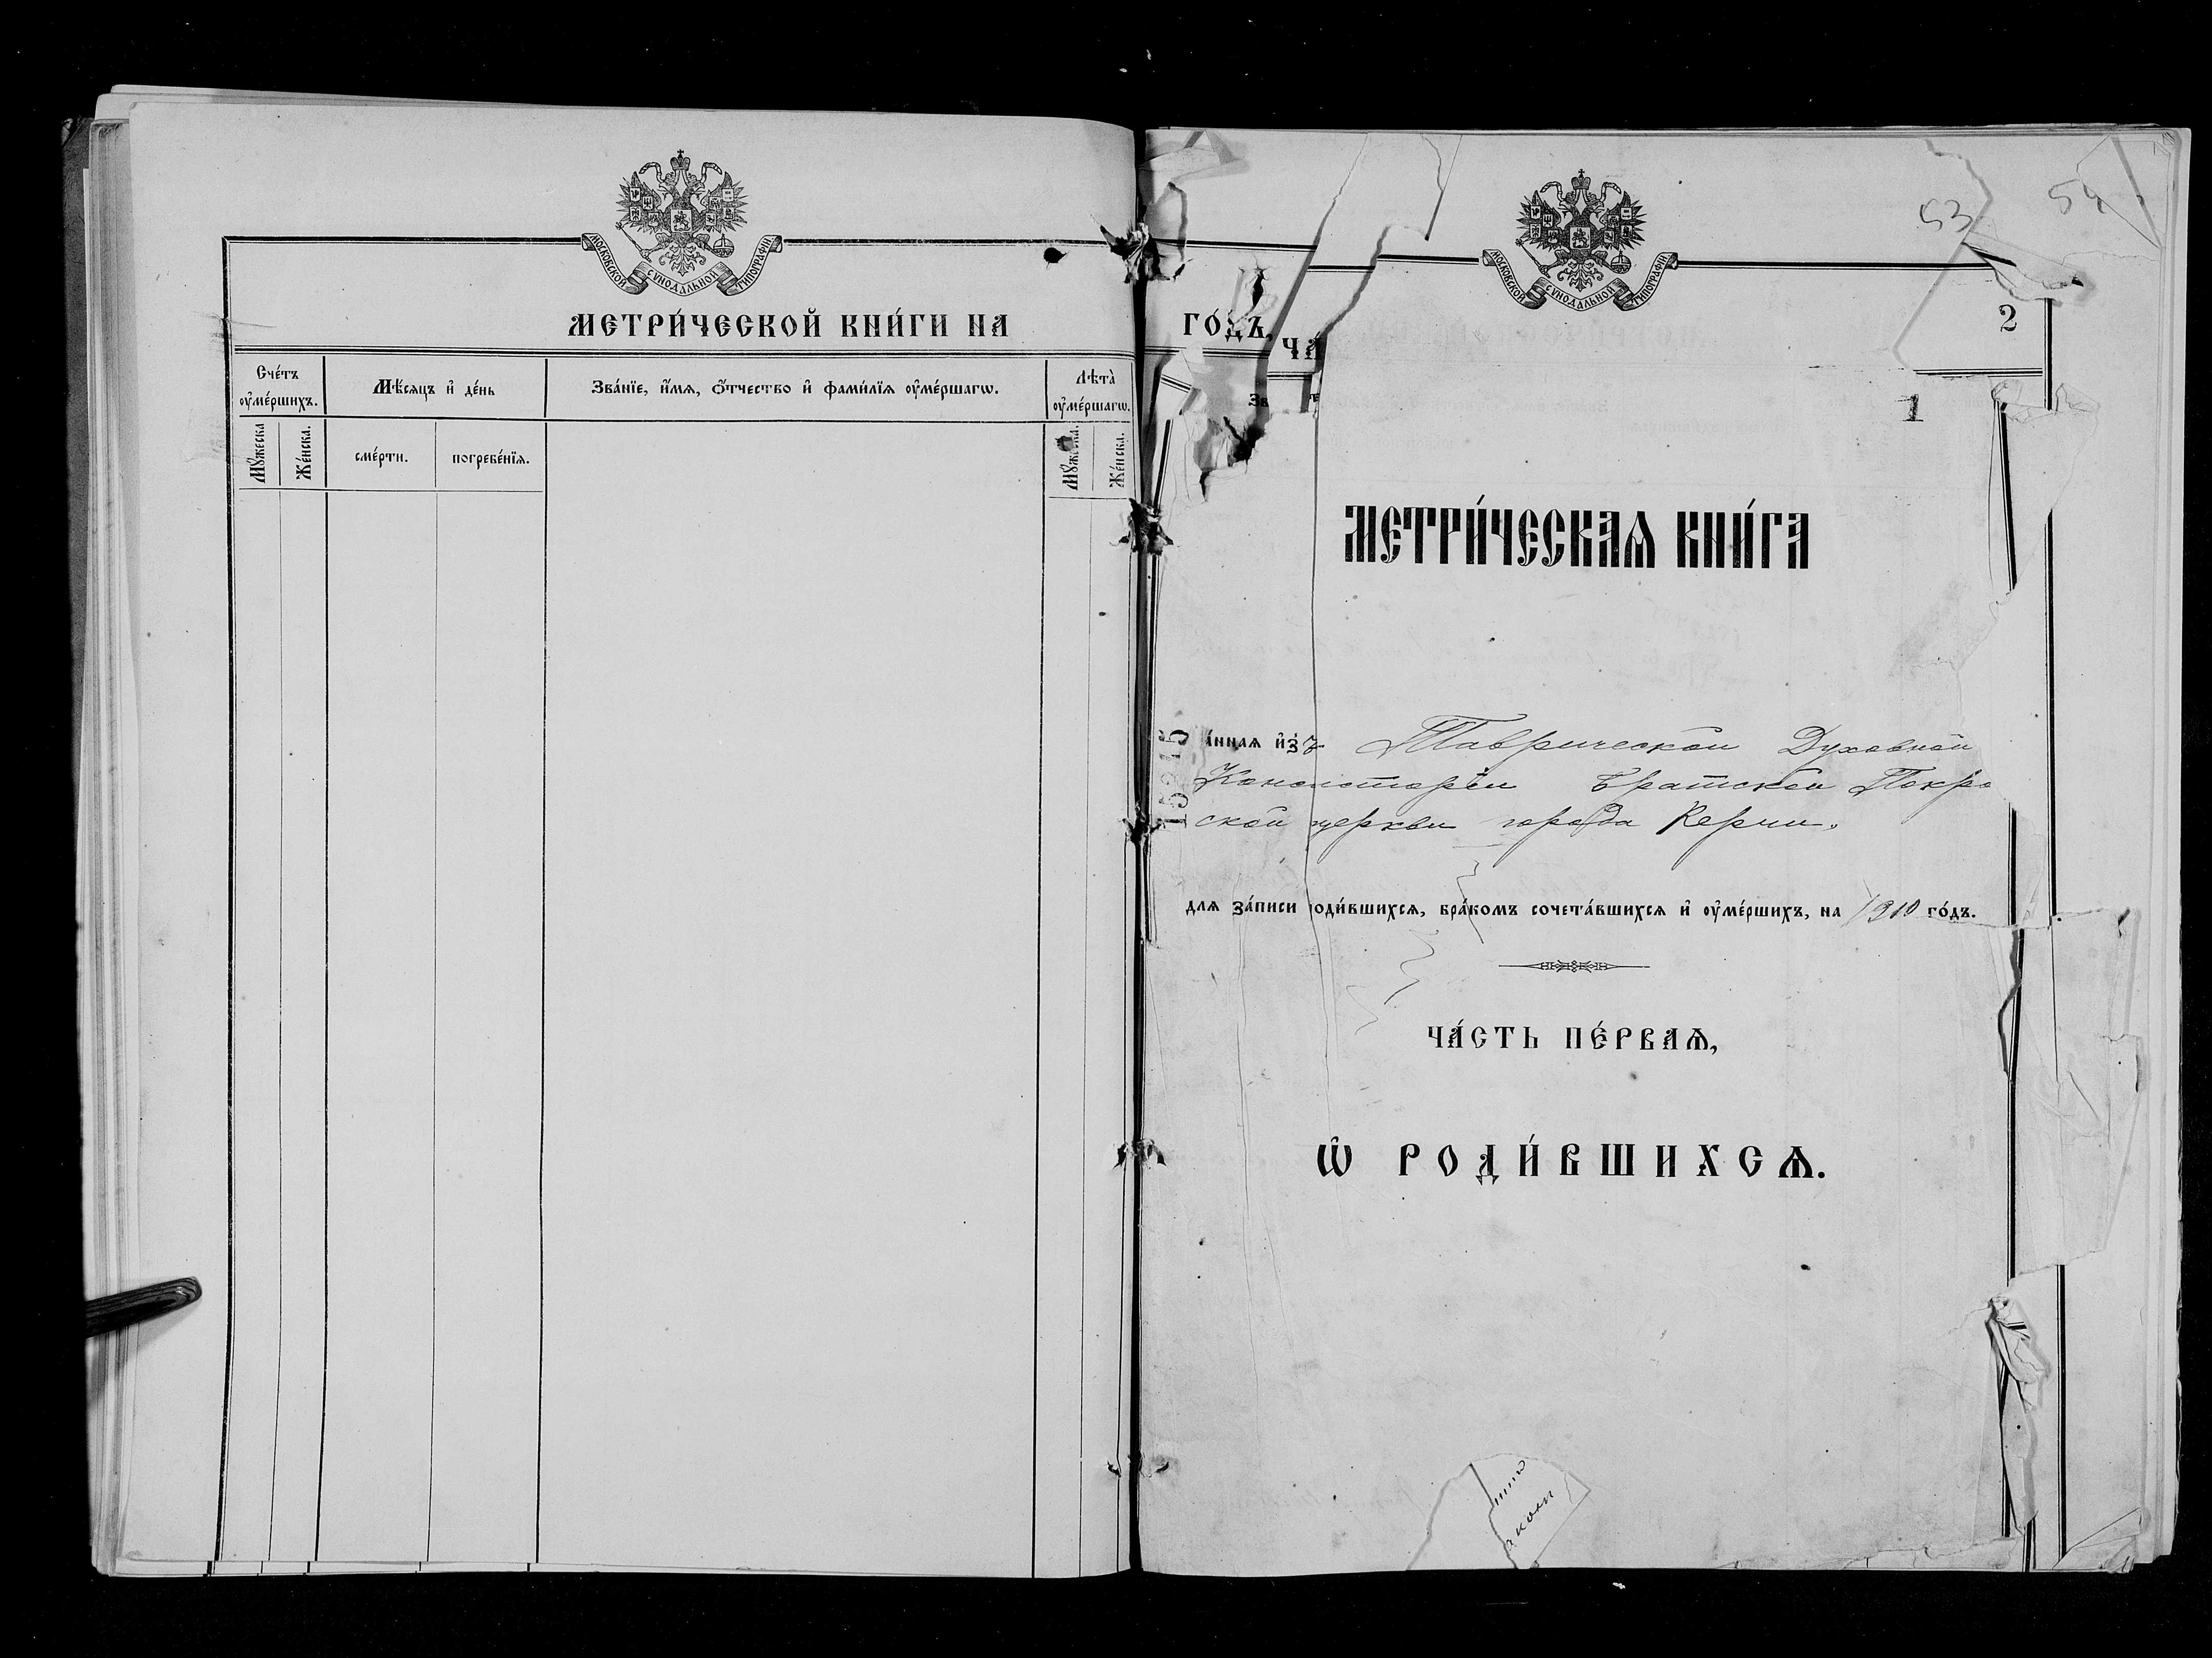 МОСКОВСКОЙ СѴНОДАЛЬНОЙ ТИПОГРАФІИ
МЕТРИ́ЧЕСКОЙ КНИ́ГИ НА
Сче́тъ ᲂу҆ме́ршихъ.
Мѣ́сяцъ и҆ де́нь
Зва́нїе, и҆́мѧ, ѻ҆́тчество и҆ фами́лїѧ ᲂу҆ме́ршагѡ.
Лѣта̀ ᲂу҆ме́ршагѡ.
Мꙋ́жеска
Же́нска.
сме́рти.
погребе́нїѧ.
Мꙋ́жеска.
Же́нска.
ГО́ДЪ,
ЧА́
53
54
МОСКОВСКОЙ СѴНОДАЛЬНОЙ ТИПОГРАФІИ
2
1
МЕТРИ́ЧЕСКАѦ КНИ́ГА
а́ннаѧ и҆зъ Таврической Духовной
Консисторіи Братской Покро
ской церкви города Керчи.
длѧ за́писи оди́вшихсѧ, бра́комъ сочета́вшихсѧ и҆ ᲂу҆ме́ршихъ, на 1910 го́дъ.
ЧА́СТЬ ПЕ́РВАѦ,
Ѡ҆ РОДИ́ВШИХСѦ.